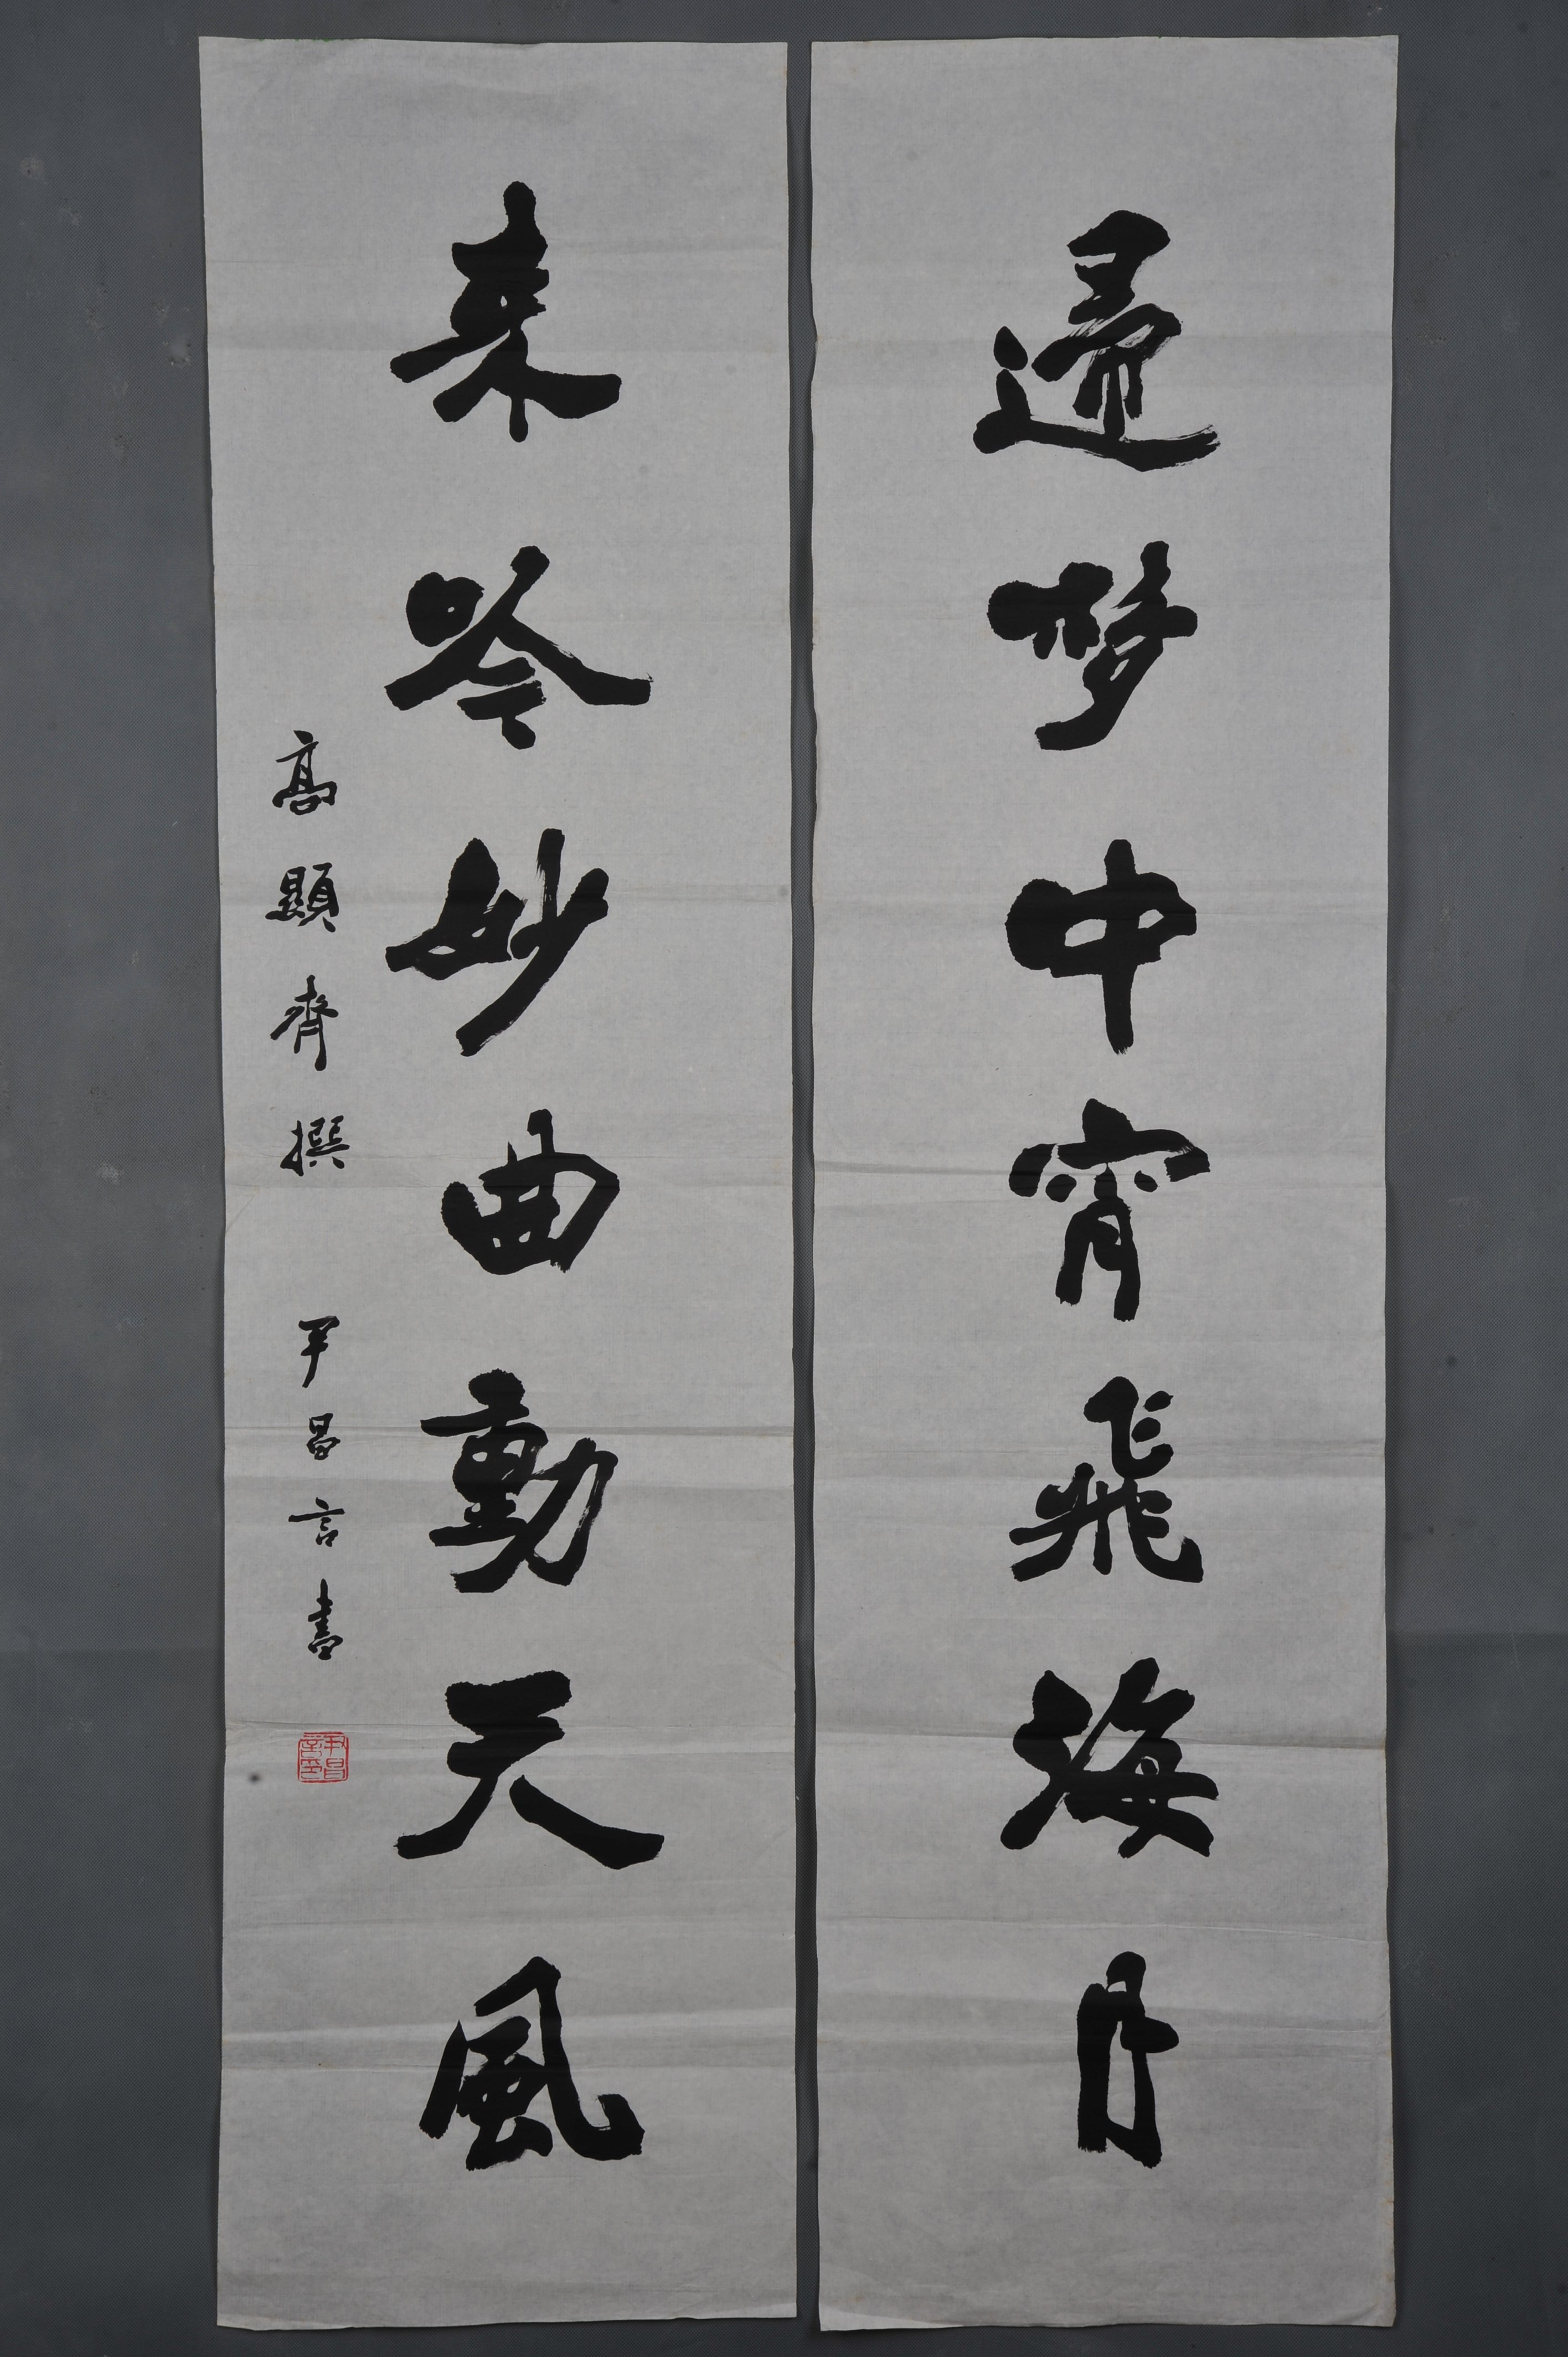 歸梦中宵飛海月
来吟妙曲動天風
高顯齊撰 尹昌言書
尹昌言印